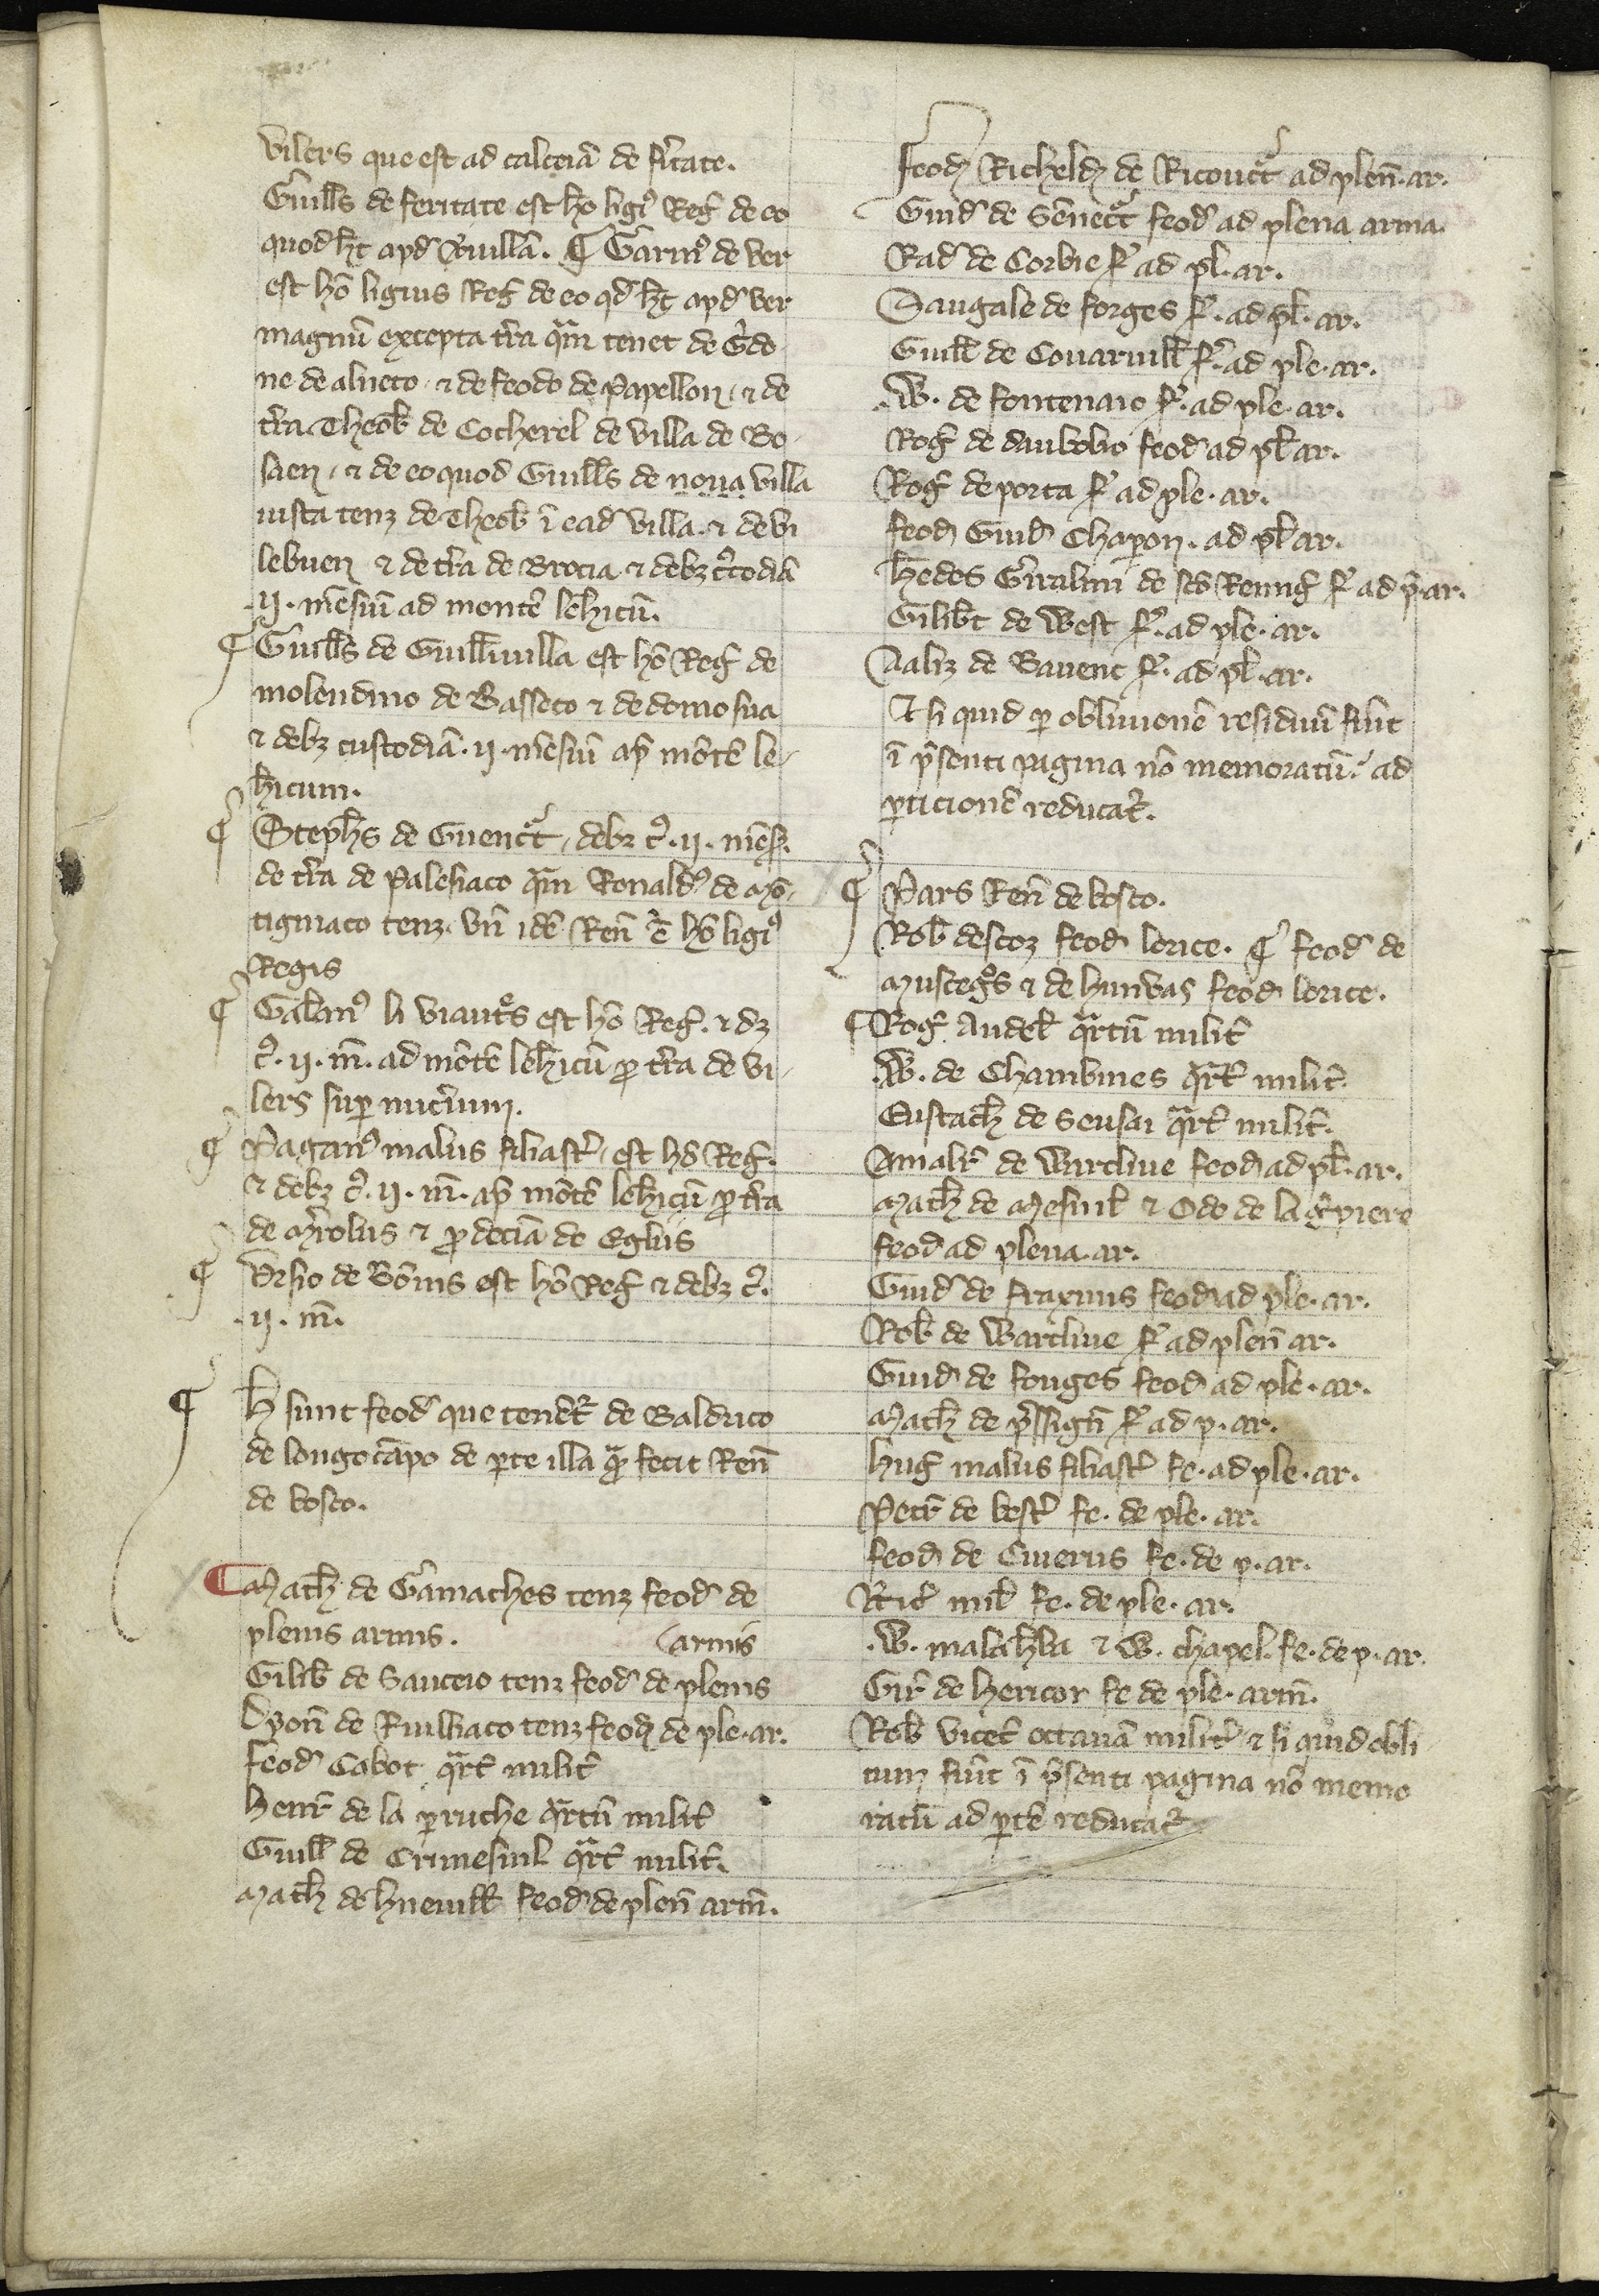 vilers que est ad calceiā de fˀitate.
Guills de feritate est ho ligiꝰ Regͥ de eo
quod ht apd Viuillā. ¶ Garinꝰ de ver
est hō ligius Regͥ de eo qd ht apd ver
magnū excepta tˀra qͣm tenet de Gˀdo
ne de alneto. ⁊ de feodo de Papellon, ⁊ de
tˀra Theob de Cocherel de villa de Bo
saen, ⁊ de eo quod Guills de noua villa
iusta tenꝫ de Theob ī ead villa. ⁊ de vi
lebuen ⁊ de tˀra de Brocia ⁊ debꝫ cˀtodiā
.ij. mēsiū ad montē lehicū.
¶ Guills de Guilliuilla est hō Regͥ de
molendino de Basseto ⁊ de domo sua
⁊ debꝫ custodiā .ij. mēsiū ap̄ mōtē le
hicum.
¶ Stephs de Guenct, debꝫ cˀ. ij. mēs.
de tˀra de Palesiaco qͣm Ronaldꝰ de Mō
tigniaco tenꝫ. vn̄ idē Ren̄ ē hō ligiꝰ
Regis
¶ Galeranꝰ li viautͤs est hō Regͥ. ⁊ dꝫ
cˀ. ij. m̄. ad mōtē lehicū ꝓ tˀra de vi
lers sup nucˀium.
¶ Paganꝰ malus filiastˀ, est hō Regͥ.
⁊ debꝫ cˀ. ij. m̄. ap̄ mōtē lehicū ꝓ tˀra
de Mˀrolus ⁊ ꝓ deciā de Egliis
¶ Vrsio de Bōnis est hō Regͥ ⁊ debꝫ cˀ.
.ij. m̄.
¶ H sunt feod que tenētˀ de Baldrico
de longo cāpo de ꝑte illa qͣm fecit Ren̄
de bosco.
¶ Math de Gamaches tenꝫ feod de
plenis armis. (armis
Gilib de Sauceio tenꝫ feod de plenis
Dyon̄ de Ruilliaco tenꝫ feod de ple. ar.
feod Cabot qͣrt militˀ
Henr de la ꝑruche qͣrtū militˀ
Guill de Crimesnil qͣrt militˀ.
Math de hneuill feod de plen̄ arm̄.
feod Richeld de Ricouct ad plen̄. ar.
Guid de Senect feod ad plena arma.
Rad de Corbie fˀ ad pl. ar.
Saugale de forges fˀ. ad pl. ar.
Guill de Couaruill fˀ. ad ple. ar.
.W. de fontenaio fˀ. ad ple. ar.
Rogͥ de daubobio feod ad pl ar.
Rogͥ de porta fˀ ad ple. ar.
feod Guid Chapon. ad pl ar.
hedes Gˀralmi de scō Remigͥ fˀ ad p. ar.
Gilibt de West fˀ. ad ple. ar.
Aaliz de Bauent fˀ. ad pl. ar.
Et si quid ꝑ obliuionē residuū fuˀit
ī pˀsenti pagina nō memoratū. ad
ꝑticionē reducatˀ.
¶ Pars Ren̄ de bosco.
Rob descoz feod lorice. ¶ feod de
Muscegͦs ⁊ de hunbas feod lorice.
¶ Rogͥ Andel qͣrtū militˀ
.W. de Chambines qͣrt militˀ.
Eustach de Seusai qͣrt militˀ.
Amalr de Warcliue feod ad pl. ar.
Math de Mesnil ⁊ Odo de la gˀpiere
feod ad plena ar.
Guid de fraxinis feod ad ple. ar.
Rob de Warcliue fˀ ad plen̄ ar.
Guid de fonges feod ad ple. ar.
Math de pˀssign̄ fˀ ad p. ar.
hugͥ malus filiastˀ fe. ad ple. ar.
Petr de bestˀ fe. de ple. ar.
feod de Ciuerus fe. de p. ar.
Ricˀ mil fe. de ple. ar.
.W. malahba ⁊ W. chapel. fe. de p. ar.
Gir de hericor fe de ple. arm̄.
Rob vicetˀ octauā militˀ ⁊ si quid obli
tum fuˀit ī pˀsenti pagina nō memo
ratū ad ꝑtē reducatˀ